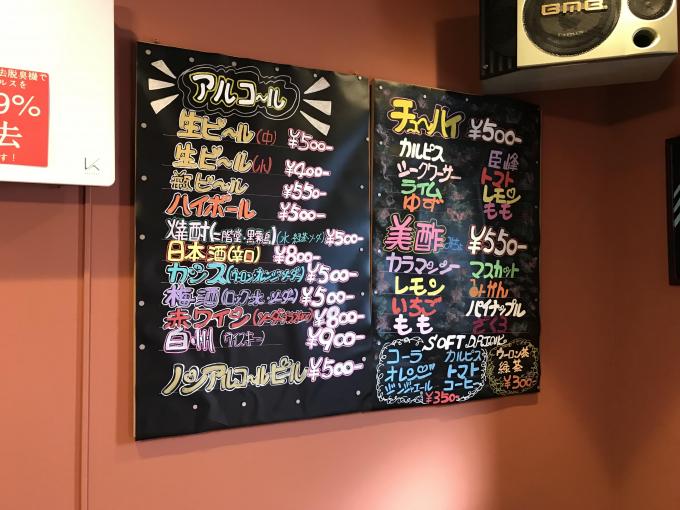 去脱臭機で
ルスを
9%
去
す!
BMB
アルコール
生ビール(中) ¥500-
生ビール(小) ¥400-
瓶ビール ¥550-
ハイボール ¥500-
焼酎(二階堂・黒霧島)(水・緑茶・ソーダ) ¥500-
日本酒(辛口) ¥800-
カシス(ウーロン・オレンジ・ソーダ) ¥500-
梅酒(ロック・水・ソーダ) ¥500-
赤ワイン ¥800-
白州(ウイスキー) ¥900-
ノンアルコールビール ¥500-
チューハイ ¥500-
カルピス 巨峰
シークワーサー トマト
ライム レモン
ゆず もも
美酢 ¥550-
カラマンシー マスカット
レモン みかん
いちご パイナップル
もも ざくろ
SOFT DRINK
コーラ カルピス
オレンジ トマト
ジンジャエール コーヒー
¥350-
ウーロン茶
緑茶
¥300-